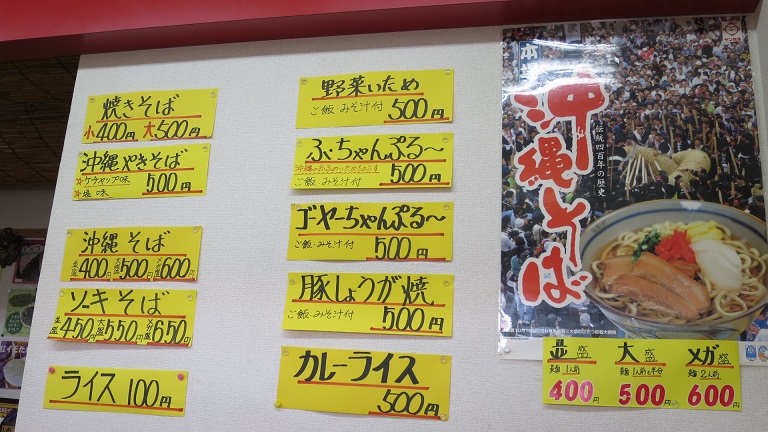 焼きそば
小400円 大500円
沖縄やきそば
☆ケチャップ味
☆塩味
500円
沖縄そば
並盛400円 大盛500円 メガ盛600円
ソーキそば
並盛450円 大盛550円 メガ盛650円
ライス 100円
野菜いため
ご飯・みそ汁付 500円
ふーちゃんぷる〜
ご飯・みそ汁付 500円
ゴーヤーちゃんぷる〜
ご飯・みそ汁付
500円
豚しょうが焼
ご飯・みそ汁付
500円
カレーライス
500円
沖縄そば
伝統四百年の歴史
並盛 大盛 メガ盛
麺1人前 麺1人前と半分 麺2人前
400円 500円 600円